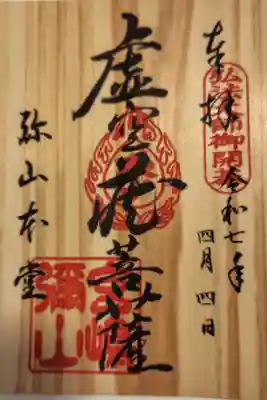 奉拝
弘法大師御開基
令和七年
四月四日
虚空蔵菩薩
弥山本堂
宮島
彌山